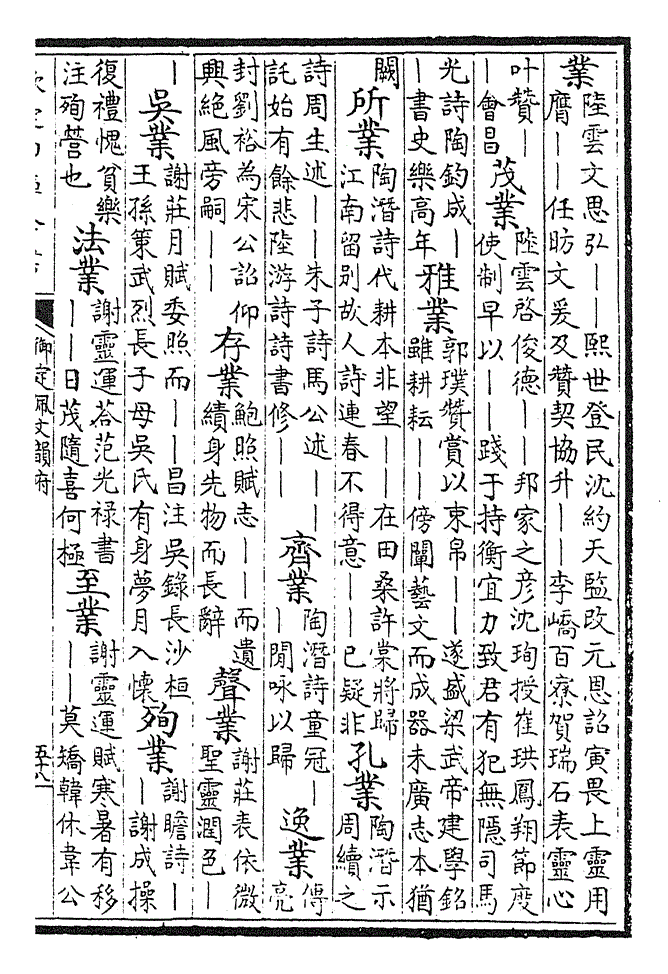 業
陸雲文思弘——熙世登民沈約天監改元恩詔寅畏上靈用
膺——任昉文爰及贊契協升——李嶠百寮賀瑞石表靈心
叶贊—
—會昌
茂業
陸雲啓俊德——邦家之彦沈珣授崔珙鳳翔節度
使制早以——踐于持衡宜力致君有犯無隱司馬
光詩陶鈞成—
—書史樂高年
雅業
郭璞贊賞以束帛——遂盛梁武帝建學銘
雖耕耘——傍闡藝文而成器未廣志本猶
闕
所業
陶潛詩代耕本非望——在田桑許棠將歸
江南留别故人詩連春不得意——已疑非
孔業
陶潛示
周續之
詩周生述——朱子詩馬公述——
託始有餘悲陸游詩詩書修——
齊業
陶潛詩童冠—
—閒咏以歸
逸業
傅
亮
封劉裕為宋公詔仰
興絕風旁嗣——
存業
鮑照賦志——而遺
績身先物而長辭
聲業
謝莊表依微
聖靈潤色—
—
吳業
謝莊月賦委照而——昌注吳錄長沙桓
王孫策武烈長子母吳氏有身夢月入懷
殉業
謝瞻詩—
—謝成操
復禮愧貧樂
注殉營也
法業
謝靈運荅范光禄書
——日茂隨喜何極
至業
謝靈運賦寒暑有移
——莫矯韓休韋公
御定佩文韻府